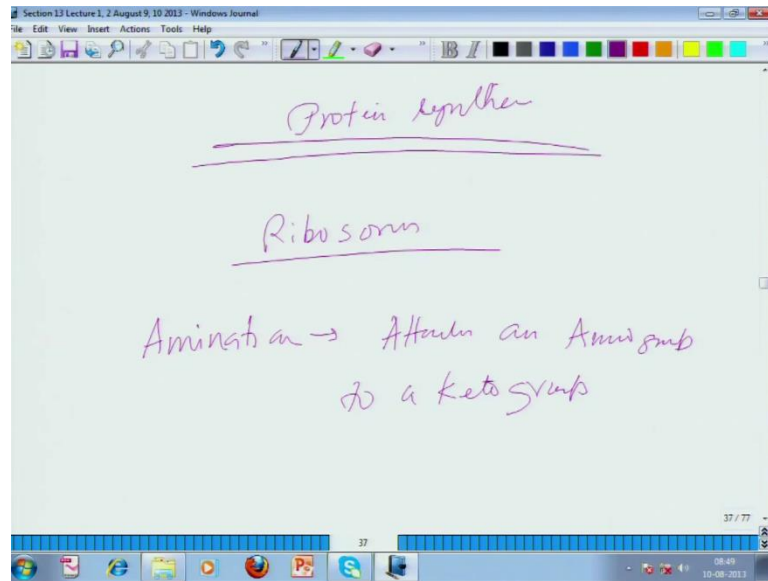 Section 13 Lecture 1, 2 August 9, 10 2013 - Windows Journal
File Edit View Insert Actions Tools Help
B I
Protein synthes
Ribosom
Amination → Attaches an Amino group
to a keto group
37 / 77
37
08:49
10-08-2013